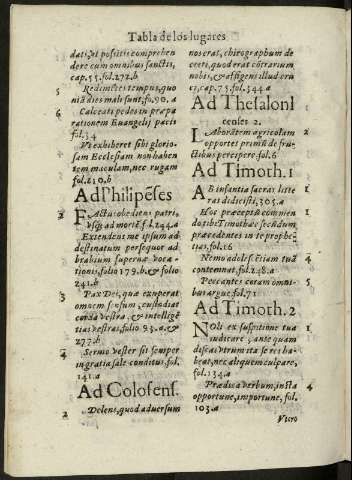 Tabla de los lugares
dati, vt possitis comprehen
dere cum omnibus sanctis,
cap. 55. fol. 272. b
5 Redimētes tempus, quo
niā dies mali sunt, fo. 90. a
6 Calceati pedes in præpa
rationem Euangelij pacis
fol. 34
Vt exhiberet sibi glorio-
sam Ecclesiam non haben
tem maculam, nec rugam
fol. 210. b
Ad Philipēses
2 FActus obediens patri,
vsq; ad mortē f. 244. a
3 Extendens me ipsum ad
destinatum persequor ad
brabium supernæ voca-
tionis, folio 179. b. & folio
241. b
3 Pax Dei, quæ exuperat
omnem sensum, custodiat
corda vestra, & intelligē
tias vestras, folio 93. a. &
277. b
4 Sermo vester sit semper
in gratia sale conditus. fol.
141. a
Ad Colosens.
2 Delens, quod aduersum
nos erat, chirographum de
creti, quod erat cōtrarium
nobis, & affigens illud cru
ci, cap. 75. fol. 344. a
Ad Thesaloni
censes 2.
LAborātem agricolam 2
oportet primū de fru-
ctibus percipere. fol. 6
Ad Timoth. 1
AB infantia sacras litte 1
ras didicisti, 303. a
Hoc præceptū commen 1
do tibi Timothæe secūdum
præcedentes in te prophe
tias, fol. 16
Nemo adolescētiam tuā 4
contemnat. fol. 248. a
Peccantes coram omni- 5
bus argue. fol. 71
Ad Timoth. 2
NOli ex suspitione tua 1
iudicare, ante quam
discas vtrum ita se res ha-
beat, nec aliquem culpare,
fol. 134. a
Prædica verbum, insta 4
opportune, importune, fol.
103. a
Vtero